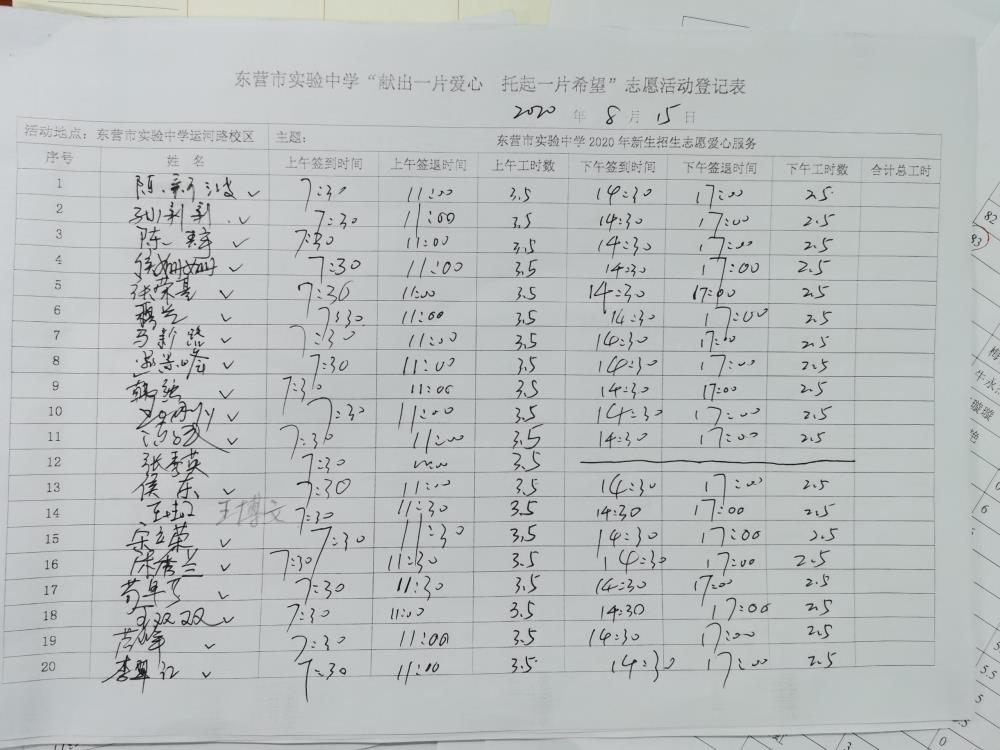 东营市实验中学“献出一片爱心 托起一片希望”志愿活动登记表
2020 年 8 月 15 日
活动地点：东营市实验中学运河路校区 主题： 东营市实验中学2020年新生招生志愿爱心服务
序号 姓 名 上午签到时间 上午签退时间 上午工时数 下午签到时间 下午签退时间 下午工时数 合计总工时
1 陈新波 ✓ 7:30 11:00 3.5 14:30 17:00 2.5
2 ✓ 7:30 11:00 3.5 14:30 17:00 2.5
3 陈 ✓ 7:30 11:00 3.5 14:30 17:00 2.5
4 侯姗姗 ✓ 7:30 11:00 3.5 14:30 17:00 2.5
5 张荣 ✓ 7:30 11:00 3.5 14:30 17:00 2.5
6 ✓ 7:30 11:00 3.5 14:30 17:00 2.5
7 马新路 ✓ 7:30 11:00 3.5 14:30 17:00 2.5
8 ✓ 7:30 11:00 3.5 14:30 17:00 2.5
9 韩 ✓ 7:30 11:00 3.5 14:30 17:00 2.5
10 ✓ 7:30 11:00 3.5 14:30 17:00 2.5
11 ✓ 7:30 11:00 3.5 14:30 17:00 2.5
12 张秀英 7:30 11:00 3.5
13 侯东 ✓ 7:30 11:00 3.5 14:30 17:00 2.5
14 王博文 7:30 11:30 3.5 14:30 17:00 2.5
15 宋立荣 ✓ 7:30 11:30 3.5 14:30 17:00 2.5
16 陈秀兰 ✓ 7:30 11:30 3.5 14:30 17:00 2.5
17 ✓ 7:30 11:30 3.5 14:30 17:00 2.5
18 王双双 ✓ 7:30 11:00 3.5 14:30 17:00 2.5
19 ✓ 7:30 11:00 3.5 14:30 17:00 2.5
20 李翠红 ✓ 7:30 11:00 3.5 14:30 17:00 2.5
82
93
璇璇
6
5
5.5
5.5
3
0